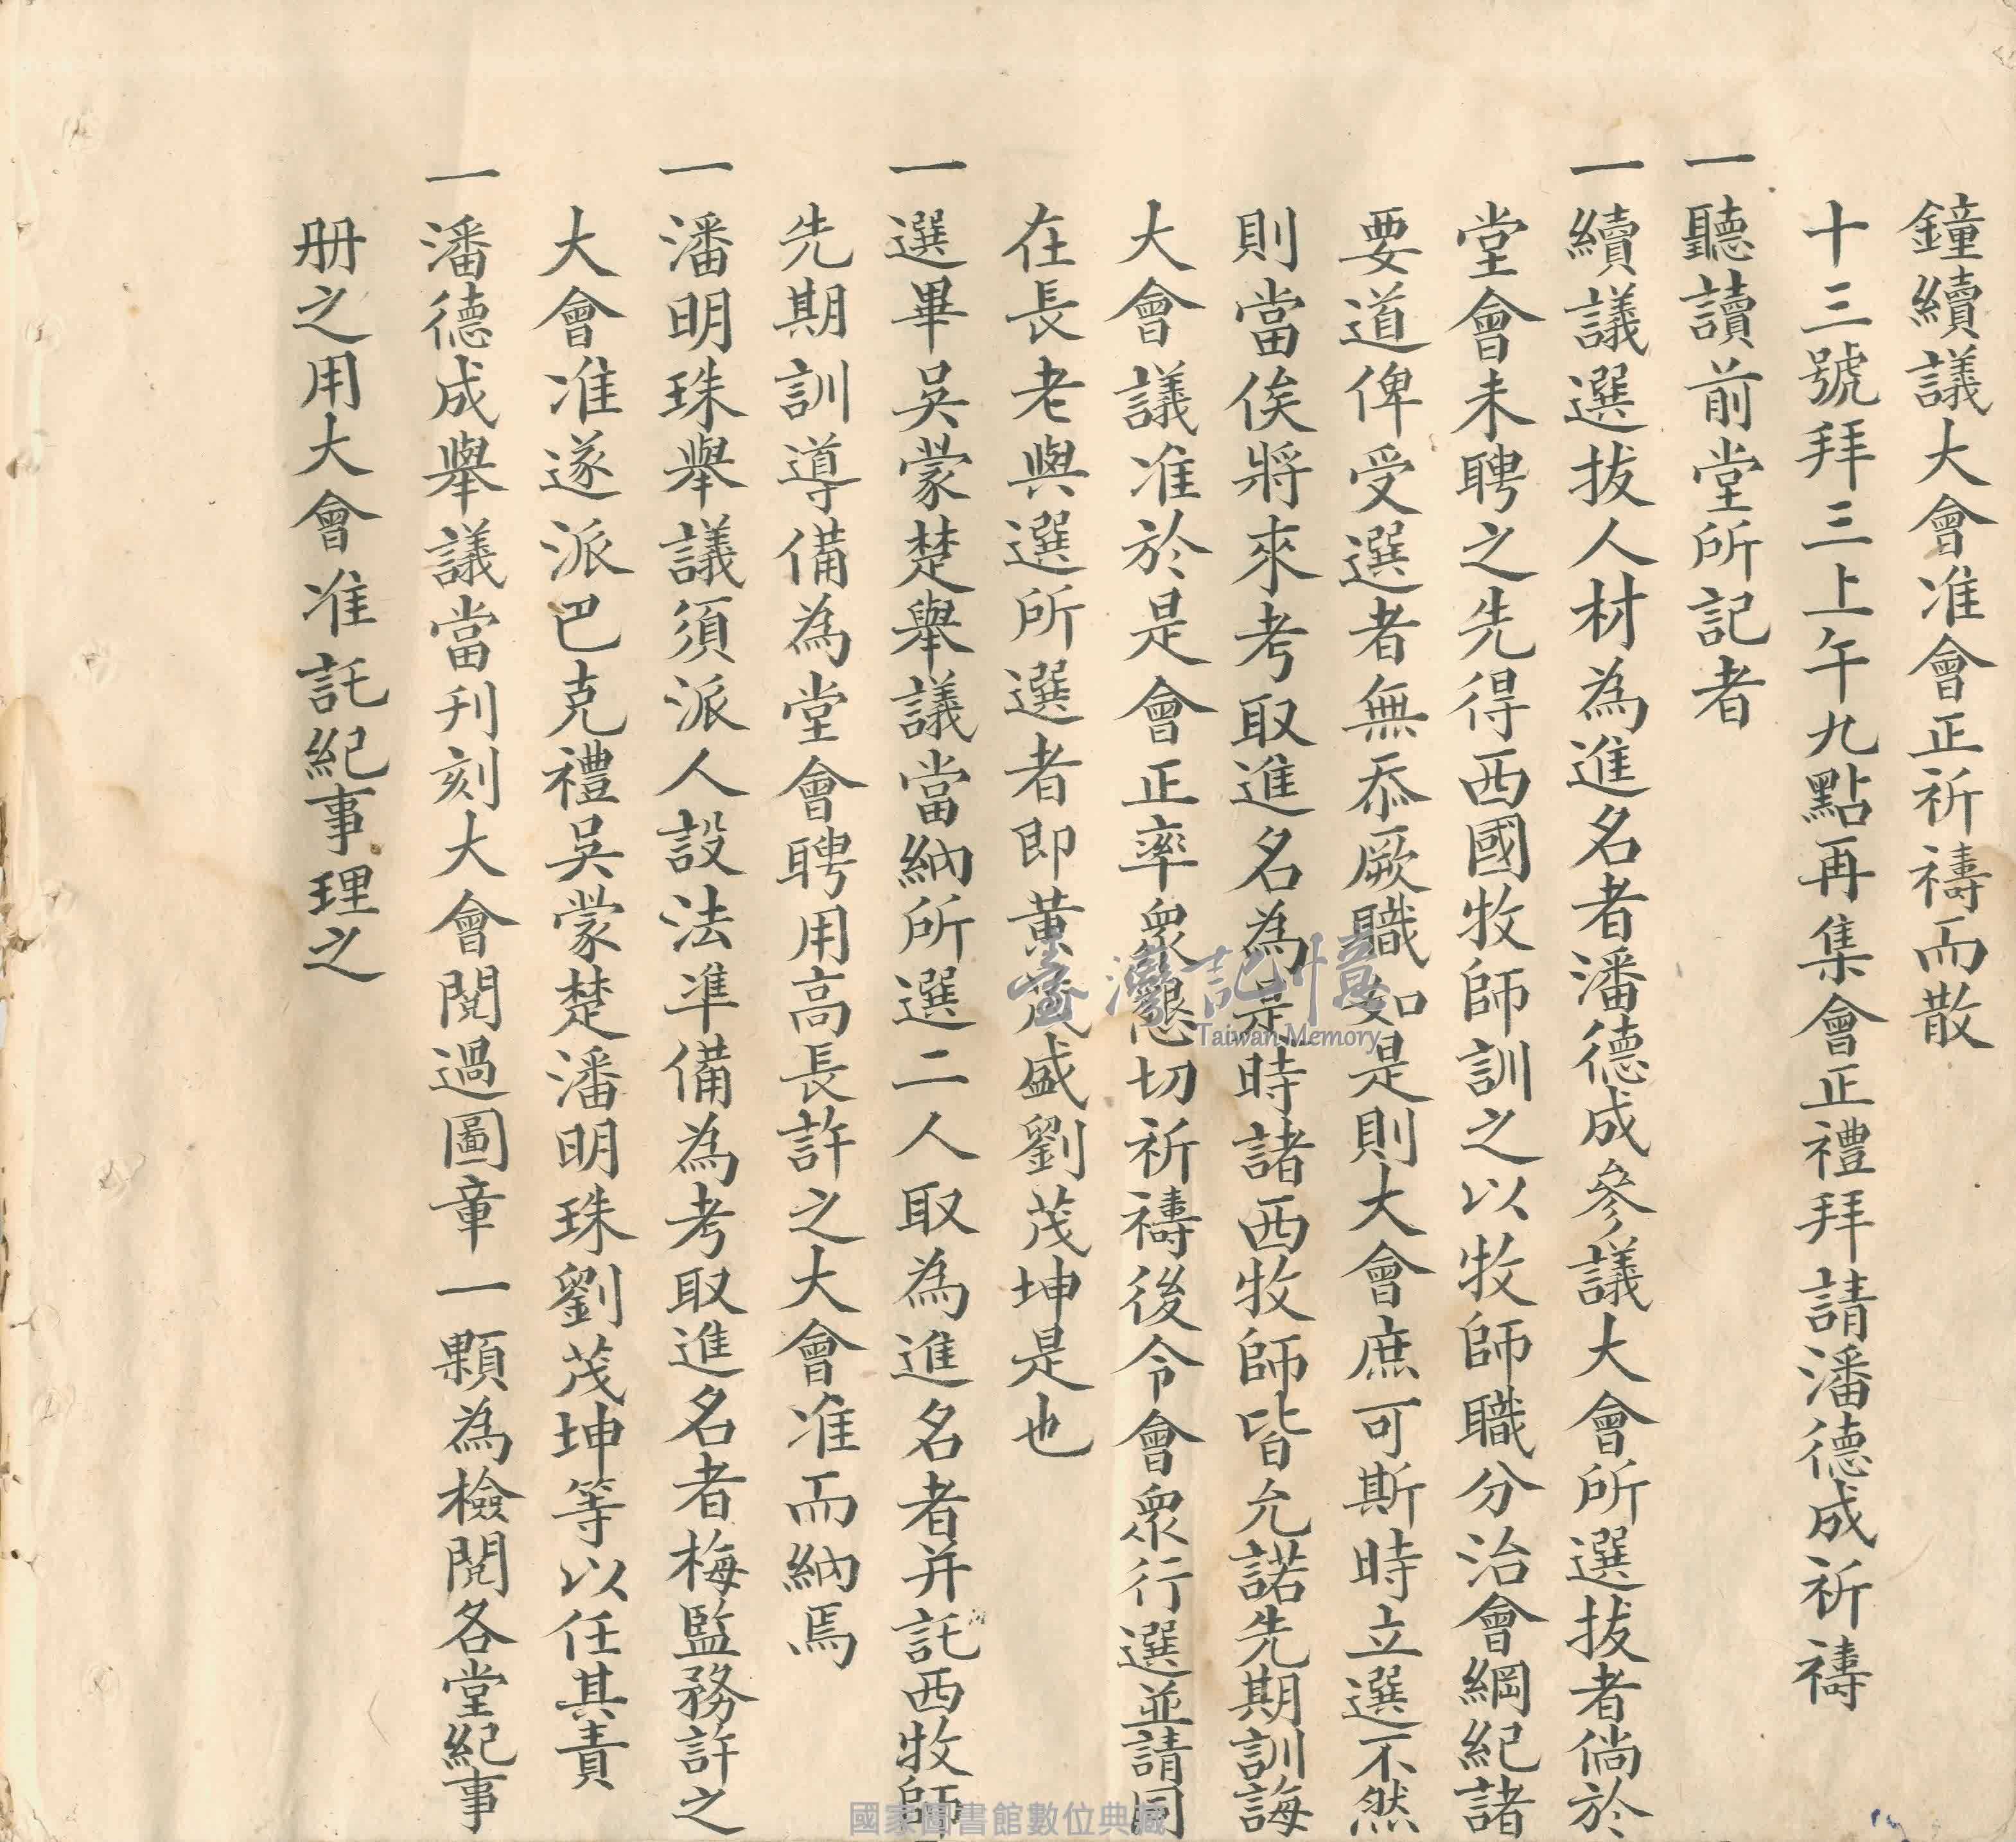 鐘續議大會准會正祈禱而散
十三號拜三上午九點再集會正禮拜請潘德成祈禱
一聽讀前堂所記者
一續議選拔人材為進名者潘德成參議大會所選拔者倘於
堂會未聘之先得西國牧師訓之以牧師職分治會綱紀諸
要道俾受選者無忝厥職如是則大會庶可斯時立選不然
則當俟將來考取進名為是時諸西牧師皆允諾先期訓誨
大會議准於是會正率眾懇切祈禱後令會眾行選並請同
在長老與選所選者即黃茂盛劉茂坤是也
一選畢吳蒙楚舉議當納所選二人取為進名者并託西牧師
先期訓導備為堂會聘用高長許之大會准而納焉
一潘明珠舉議須派人設法準備為考取進名者梅監務許之
大會准遂派巴克禮吳蒙楚潘明珠劉茂坤等以任其責
一潘德成舉議當刊刻大會閱過圖章一顆為檢閱各堂紀事
册之用大會准託紀事理之
臺灣記憶
Taiwan Memory
國家圖書館數位典藏